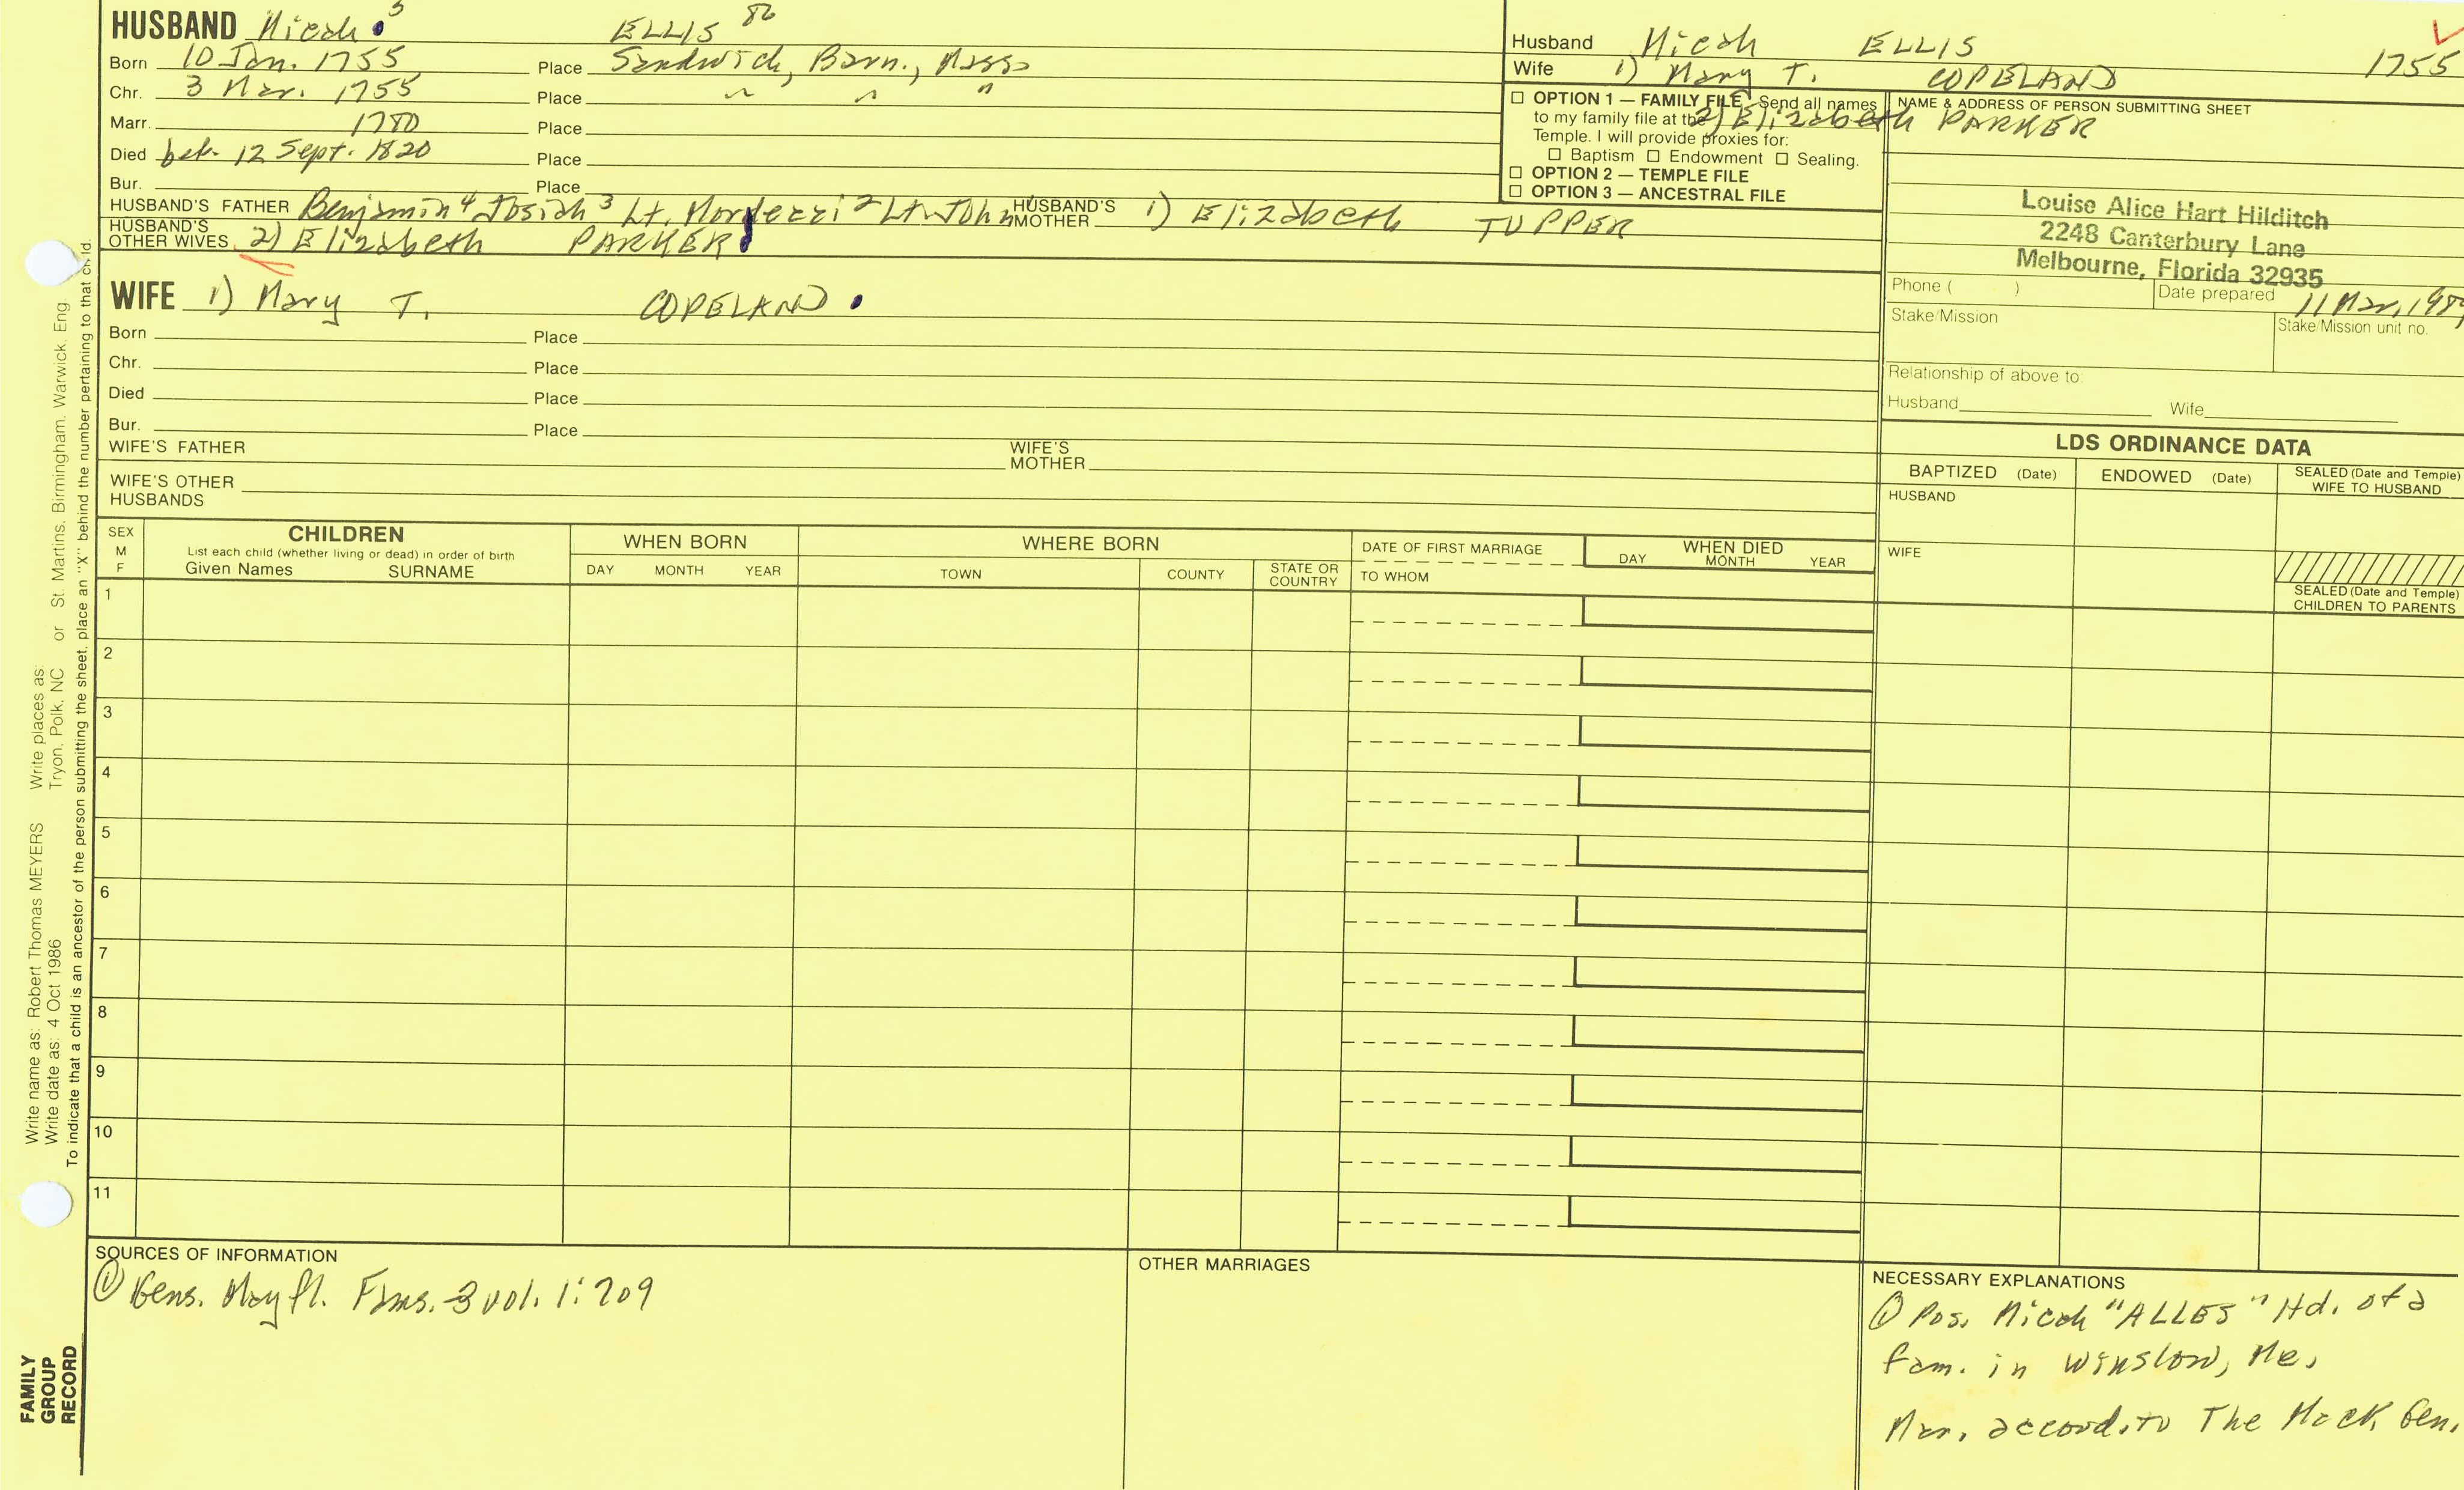 HUSBAND Micah 5 ELLIS 86
Born 10 Jan. 1755 Place Sandwich, Barn., Mass
Chr. 3 Mar. 1755 Place " " "
Marr. 1780 Place
Died bef. 12 Sept. 1820 Place
Bur. Place
HUSBAND'S FATHER Benjamin 4 Josiah 3 Lt. Mordecai 2 Lt. John HUSBAND'S MOTHER 1) Elizabeth TUPPER
HUSBAND'S OTHER WIVES 2) Elizabeth PARKER
WIFE 1) Mary T. COPELAND
Born Place
Chr. Place
Died Place
Bur. Place
WIFE'S FATHER WIFE'S MOTHER
WIFE'S OTHER HUSBANDS
Husband Micah ELLIS 1755
Wife 1) Mary T. COPELAND
2) Elizabeth PARKER
☐ OPTION 1 — FAMILY FILE Send all names
to my family file at the
Temple. I will provide proxies for:
☐ Baptism ☐ Endowment ☐ Sealing.
☐ OPTION 2 — TEMPLE FILE
☐ OPTION 3 — ANCESTRAL FILE
NAME & ADDRESS OF PERSON SUBMITTING SHEET
Louise Alice Hart Hilditch
2248 Canterbury Lane
Melbourne, Florida 32935
Phone ( ) Date prepared 11 Mar,
Stake/Mission Stake/Mission unit no.
Relationship of above to:
Husband Wife
LDS ORDINANCE DATA
BAPTIZED (Date) ENDOWED (Date) SEALED (Date and Temple) WIFE TO HUSBAND
HUSBAND
WIFE
SEALED (Date and Temple)
CHILDREN TO PARENTS
SEX M F
CHILDREN
List each child (whether living or dead) in order of birth
Given Names SURNAME
WHEN BORN
DAY MONTH YEAR
WHERE BORN
TOWN COUNTY STATE OR COUNTRY
DATE OF FIRST MARRIAGE
TO WHOM
WHEN DIED
DAY MONTH YEAR
1
2
3
4
5
6
7
8
9
10
11
SOURCES OF INFORMATION
① Gens. Mayfl. Fams. 3 vol. 1: 709
OTHER MARRIAGES
NECESSARY EXPLANATIONS
① Pos. Micah "ALLES" Hd. of a
fam. in Winslow, Me.
Mar. accord. to The Mack Gen.
Write name as: Robert Thomas MEYERS Write places as:
Write date as: 4 Oct 1986 Tryon, Polk, NC or St. Martins, Birmingham, Warwick, Eng
To indicate that a child is an ancestor of the person submitting the sheet, place an "X" behind the number pertaining to that child.
FAMILY
GROUP
RECORD